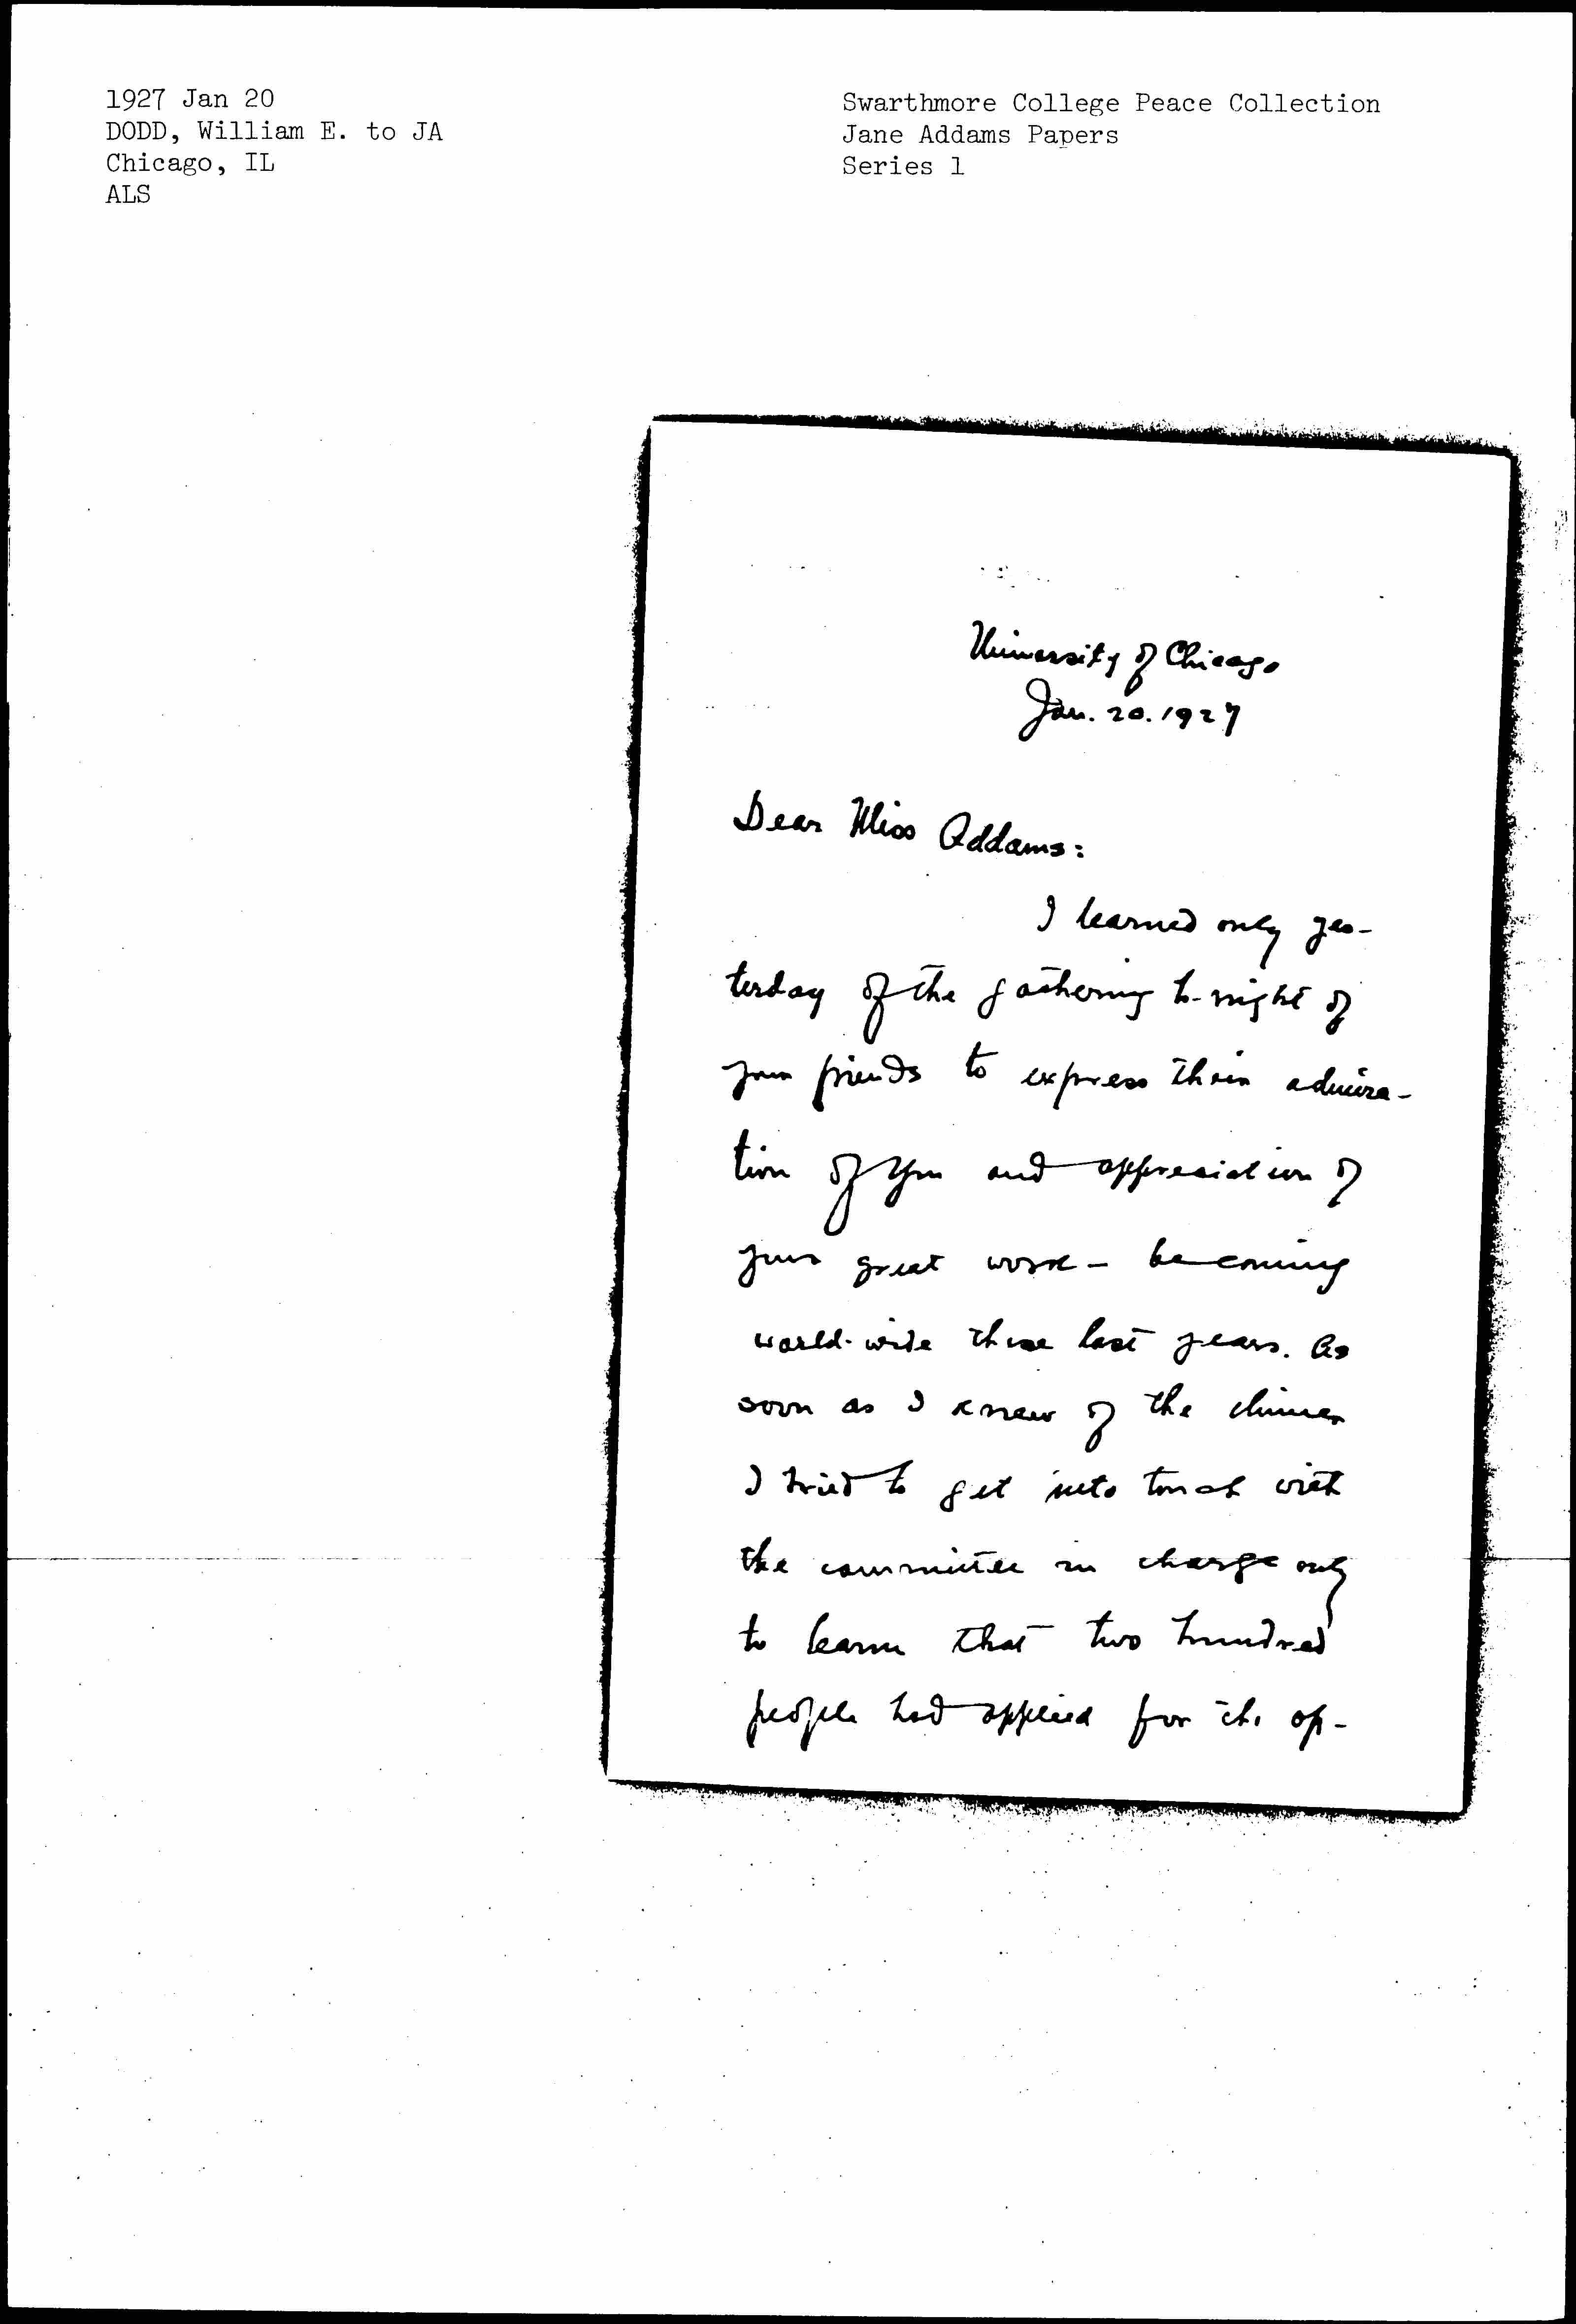 1927 Jan 20
DODD, William E. to JA
Chicago, IL
ALS
Swarthmore College Peace Collection
Jane Addams Papers
Series 1
University of Chicago
Jan. 20. 1927
Dear Miss Addams:
I learned only yes-
terday of the gathering to-night of
your friends to express their admira-
tion of you and appreciation of
your great work - becoming
world-wide these last years. As
soon as I knew of the dinner
I tried to get into touch with
the committee in charge only
to learn that two hundred
people had applied for the op-